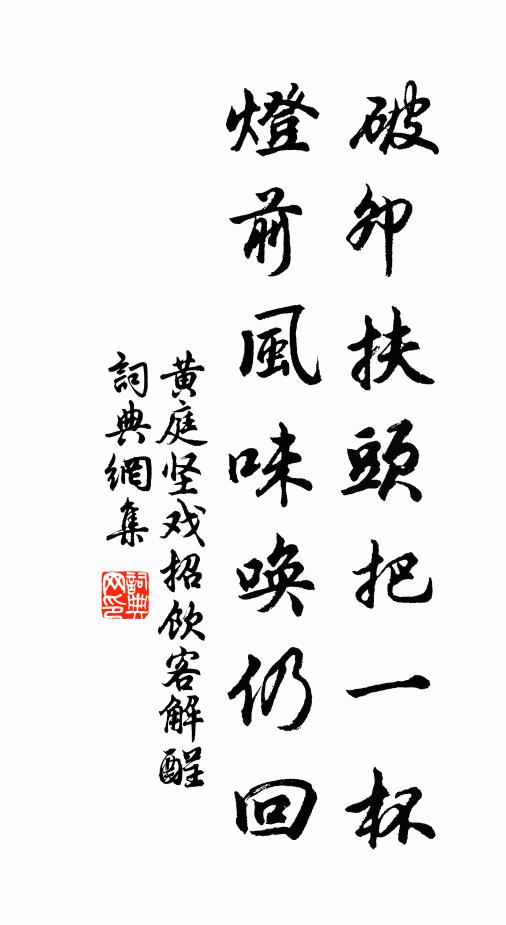 破卯扶頭把一杯
燈前風味喚仍回
黄庭坚戏招飲客解酲
詞典網集
詞典网印